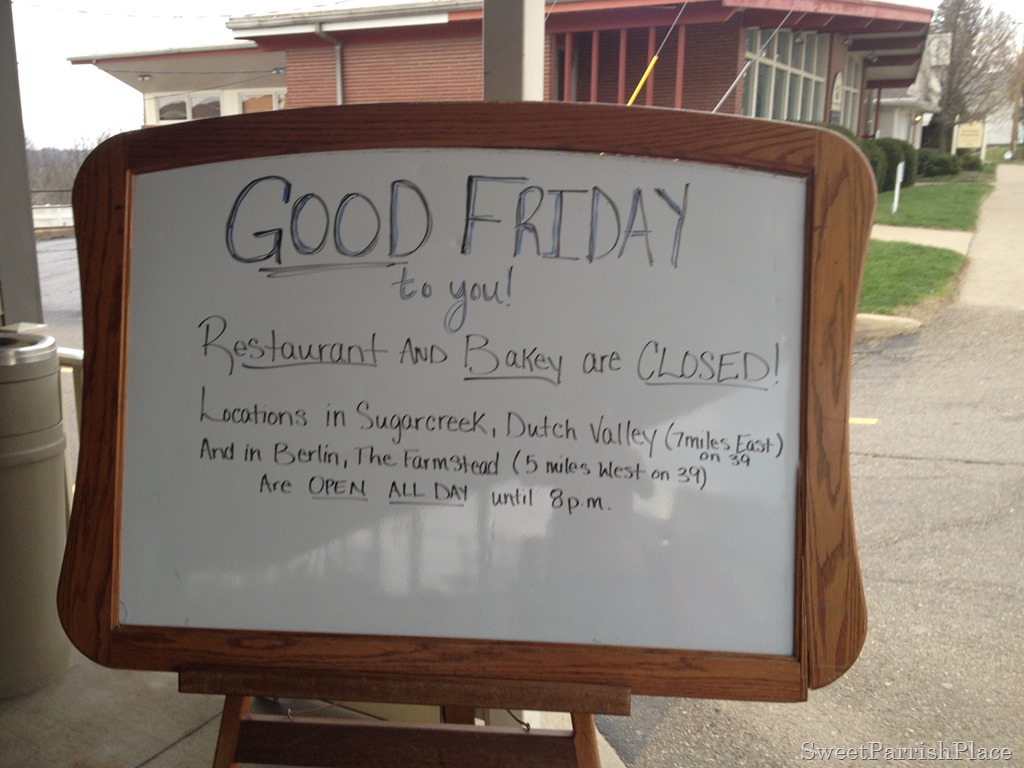 GOOD FRIDAY
to you!
Restaurant AND Bakey are CLOSED!
Locations in Sugarcreek, Dutch Valley (7miles East)
on 39
And in Berlin, The Farmstead (5 miles West on 39)
Are OPEN ALL DAY until 8p.m.
SweetParrishPlace